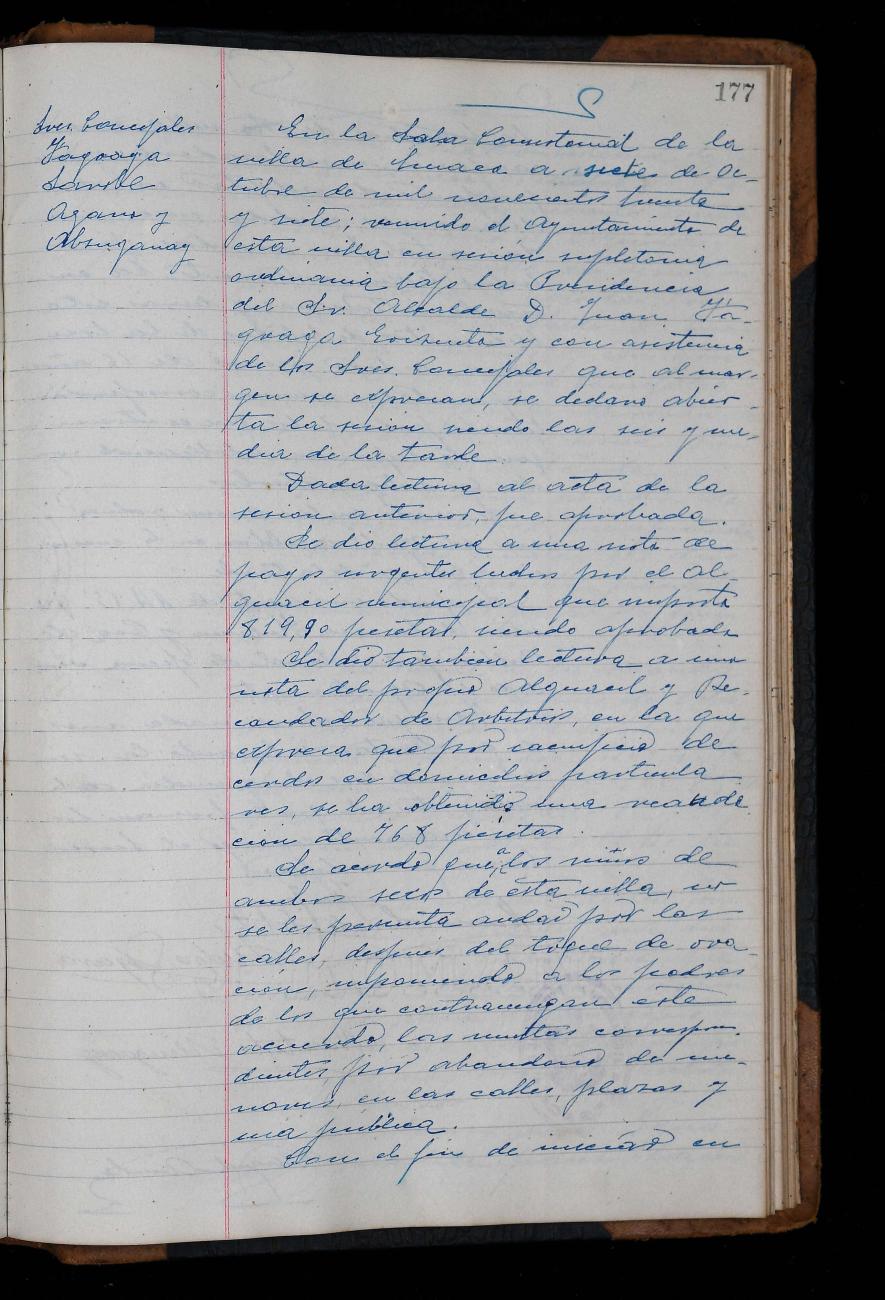 177
Sres. Concejales
Yagoaga
Sarobe
Agara y
En la Sala Consistorial de la
villa de a siete de Oc-
tubre de mil novecientos treinta
y siete; reunido el Ayuntamiento de
esta villa en sesión supletoria
ordinaria bajo la Presidencia
del Sr. Alcalde D. Juan Ya-
goaga y con asistencia
de los Sres. Concejales que al mar-
gen se expresan, se declaró abier-
ta la sesión siendo las seis y me-
dia de la tarde.
Dada lectura al acta de la
sesión anterior, fue aprobada.
Se dio lectura a una nota de
pagos urgentes hechos por el Al-
guacil municipal que importa
819,90 pesetas, siendo aprobada
Se dió también lectura a una
nota del propio Alguacil y Re-
caudador de Arbitrios, en la que
expresa que por sacrificio de
cerdos en domicilios particula
res, se ha obtenido una recauda
cion de 768 pesetas.
Se acordó que a los niños de
ambos sexos de esta villa, no
se les permita andar por las
calles, después del toque de ora-
ción, imponiendo a los padres
de los que contravengan este
acuerdo, las multas correspon-
dientes, por abandono de me-
nores, en las calles, plazas y
via pública.
Con el fin de iniciar en